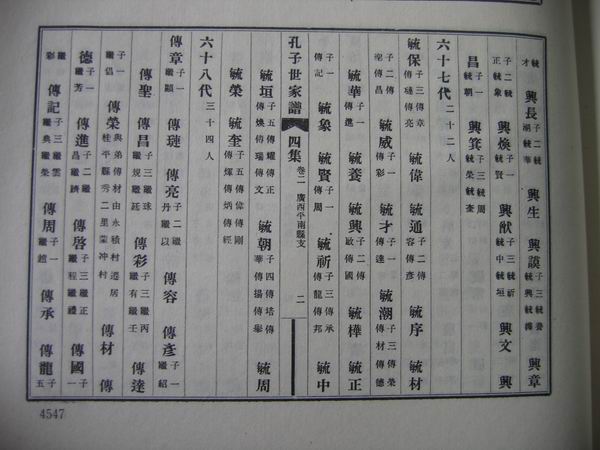 毓才 興長 子二毓湖毓華 興生 興謨 子三毓養毓興毓樺 興章
子二毓正毓象 興煥 子一毓賢 興猷 子三毓祈毓中毓垣 興文 興
昌 子一毓朝 興箕 子三毓周毓榮毓奎
六十七代 二十二人
毓保 子三傳章傳璉傳亮 毓偉 毓通 子二傳容傳彥 毓序 毓材
子二傳聖傳昌 毓威 子一傳彩 毓才 子一傳達 毓潮 子三傳榮傳材傳德
毓華 子一傳進 毓養 毓興 子二傳啟傳國 毓樺 毓正
子一傳記 毓象 毓賢 子一傳周 毓祈 子三傳承傳龍傳邦 毓中
孔子世家譜 四集 卷二 廣西平南縣支 二
毓垣 子五傳耀傳正傳煥傳瑞傳文 毓朝 子四傳塔傳華傳揚傳舉 毓周
毓榮 毓奎 子五傳偉傳剛傳輝傳炳傳經
六十八代 三十四人
傳章 子一繼顯 傳璉 傳亮 子二繼丹繼以 傳容 傳彥 子一繼紹
傳聖 傳昌 子三繼球繼規繼廷 傳彩 子三繼丙繼有繼壬 傳達
子一繼倡 傳榮 與弟傳材由永積村遷居桂平縣秀二里蒙冲村 傳材 傳
德 子一繼芳 傳進 子二繼昌繼 傳啓 子三繼正繼程繼禮 傳國 子一
繼彩 傳記 子三繼雲繼典繼榮 傳周 子一繼 傳承 傳龍 子五
4547